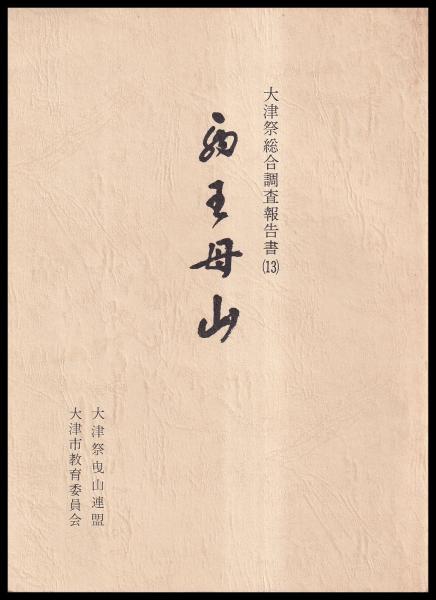 大津祭総合調査報告書(13)
西王母山
大津祭曳山連盟
大津市教育委員会